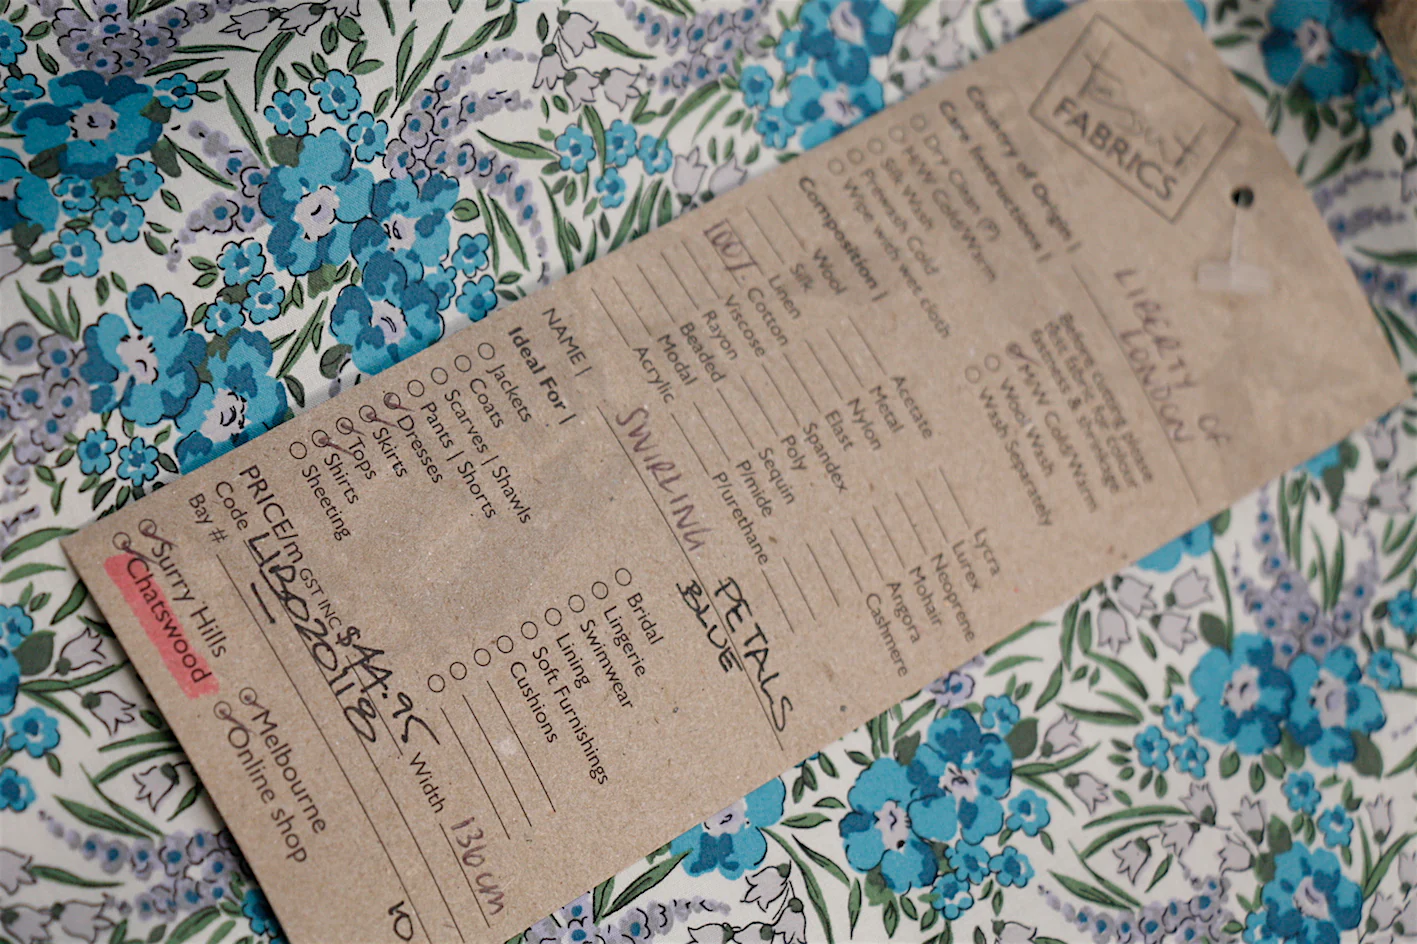 Tessuti
FABRICS
Country of Origin |
LIBERTY OF
LONDON
Care Instructions |
Dry Clean (P)
H/W Cold/Warm
Silk Wash
Prewash Cold
Wipe with wet cloth
Before cutting please
test fabric for colour
fastness & shrinkage
M/W Cold/Warm
Wool Wash
Wash Separately
Composition |
Wool
Silk
Linen
100% Cotton
Viscose
Rayon
Beaded
Modal
Acrylic
Acetate
Metal
Nylon
Elast
Spandex
Poly
Sequin
P/mide
P/urethane
Lycra
Lurex
Neoprene
Mohair
Angora
Cashmere
NAME |
SWIRLING PETALS
BLUE
Ideal For |
Jackets
Coats
Scarves | Shawls
Pants | Shorts
Dresses
Skirts
Tops
Shirts
Sheeting
Bridal
Lingerie
Swimwear
Lining
Soft Furnishings
Cushions
PRICE/m GST INC $44.95 Width 136cm
Code LIB020118
Bay #
Surry Hills
Chatswood
Melbourne
Online shop